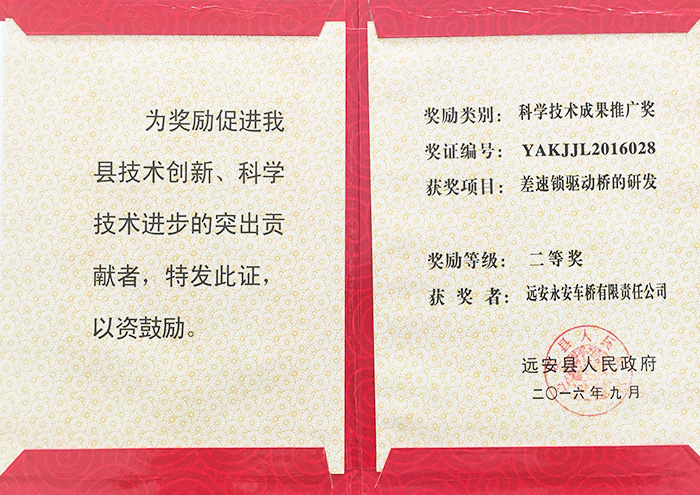 为奖励促进我
县技术创新、科学
技术进步的突出贡
献者，特发此证，
以资鼓励。
奖励类别：科学技术成果推广奖
奖证编号：YAKJJL2016028
获奖项目：差速锁驱动桥的研发
奖励等级：二等奖
获奖者：远安永安车桥有限责任公司
县人民
远安县人民政府
二〇一六年九月